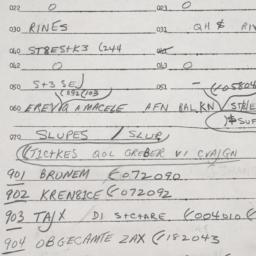 022 O 023 O
030 RINES 032 QH & RIV
040 STRESTK3 (244
042 O 043 O
050 S+3 SE 051 - (05804
(092/103
060 EREVIA AMACELE AFN BALKN / ST/E
$SUF
070 SLUPES / SLUR
(TICTKES QOL GREBER VI CVAJGN
901 BRUNEM (072090
902 KRENBICE (072092
903 TAJX DI S+C+ARE (004010 (
904 OBGECAMTE ZAX (182043